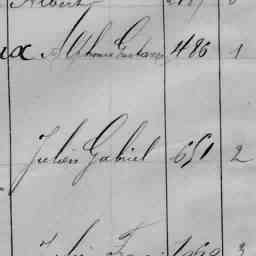 Albert
ux Alphonse Gustave 486 1
Julien Gabriel 651 2
3